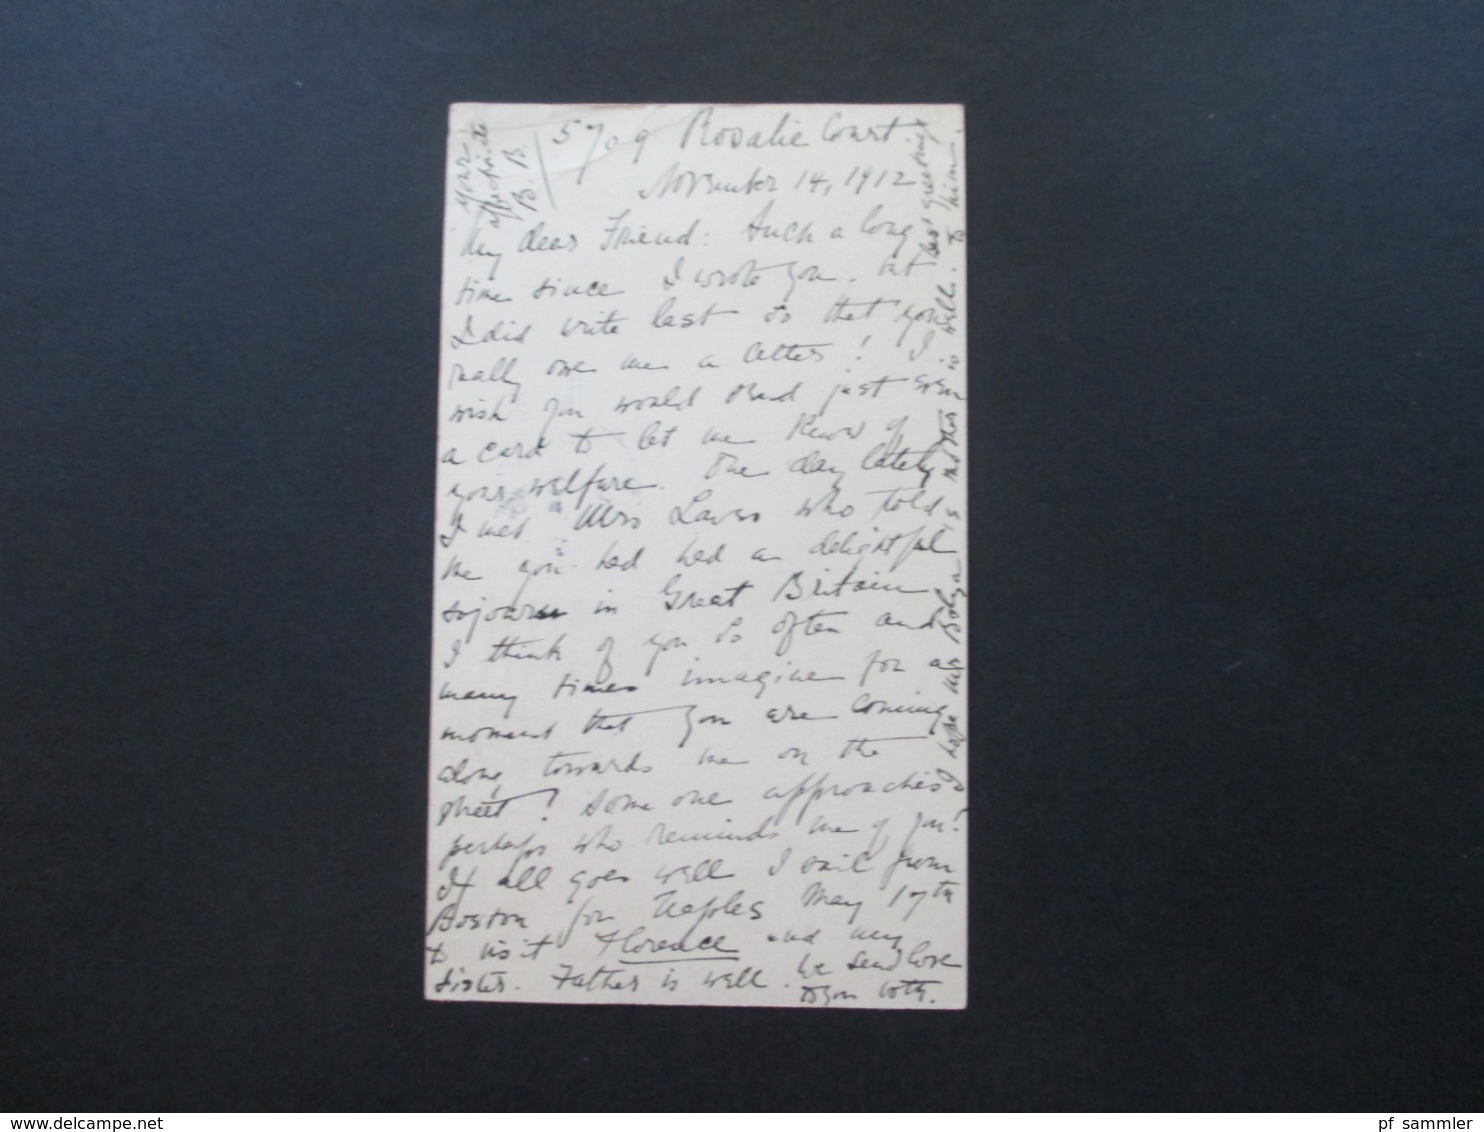 5709 Rosalie Court
November 14, 1912
My dear Friend: Such a long
time since I wrote you. but
I did write last so that you
really owe me a letter! I
wish you would send just even
a card to let me know of
your welfare. One day lately
I met Mrs Laves who told
me you had had a delightful
sojourn in Great Britain
I think of you so often and
many times imagine for a
moment that you are coming
along towards me on the
street! Some one approaches
perhaps who reminds me of you!
If all goes well I sail from
Boston for Naples May 17th
to visit Florence and my
sister. Father is well. We send love
to you both.
I hope Mr 's mother is well. to him.
best greetings
Your
affectionate
B. B.
delcampe.net
pf sammler